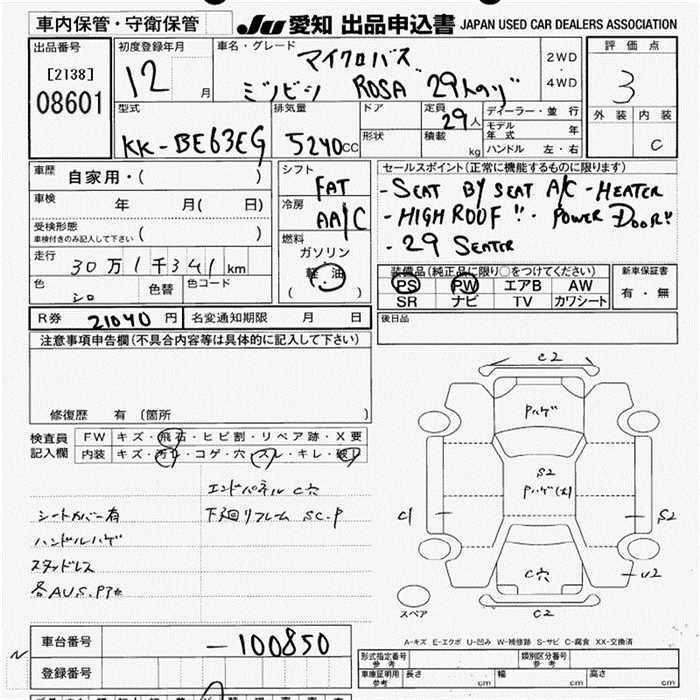 車内保管・守衛保管
JU 愛知 出品申込書 JAPAN USED CAR DEALERS ASSOCIATION
出品番号
[2138]
08601
初度登録年月
12 月
車名・グレード
マイクロバス
ミツビシ ROSA 29人のり
2WD
4WD
評価点
3
外装 内装
C
型式
KK-BE63EG
排気量
5240CC
ドア
形状
定員
29人
積載
kg
ディーラー・並行
モデル年式 年
ハンドル 左・右
車歴 自家用・( )
車検 年 月( 日)
受検形態
車検付きのみ記入して下さい ( )
走行 30万1千341km
色 シロ 色替 色コード
シフト
FAT
冷房
AA/C
燃料
ガソリン
軽油
( )
セールスポイント(正常に機能するものに限ります)
- SEAT BY SEAT A/C - HEATER
- HIGH ROOF !! - POWER DOOR!!
- 29 SEATER
装備品(純正品に限り○をつけてください)
PS PW エアB AW
SR ナビ TV カワシート
新車保証書
有・無
R券 21040円 名変通知期限 月 日
後日品
注意事項申告欄(不具合内容等は具体的に記入して下さい)
修復歴 有(箇所 )
検査員記入欄
FW キズ・飛石・ヒビ割・リペア跡・X要
内装 キズ・汚レ・コゲ・穴・スレ・キレ・破レ
エンドパネル C穴
シートカバー有 下廻リフレーム SC.P
ハンドルハゲ
スタッドレス
車台番号 -100850
登録番号
C2
Pハゲ
S2
Pハゲ(大)
C1
S2
C穴
U2
C2
スペア
A-キズ E-エクボ U-凹み W-補修跡 S-サビ C-腐食 XX-交換済
形式指定番号 参考
類別区分番号 参考
車庫証明用 参考 長さ cm 幅 cm 高さ cm